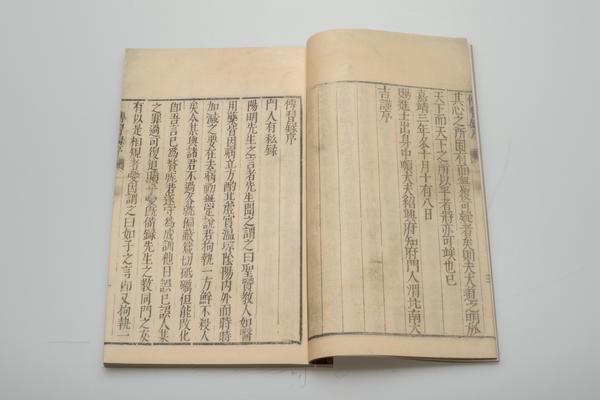 其心之所固有而無疑可疑者矣則夫夫道之明於
天下而天下之所以平者將亦可竢也已
嘉靖三年冬十月十有八日
賜進士出身中順大夫紹興府知府門人渭北南大
吉謹序
傳習錄序
門人有私錄
陽明先生之言者先生聞之謂之曰聖賢教人如醫
用藥皆因病立方酌其虛實溫凉陰陽內外而時時
加減之要在去病初無定說若拘執一方鮮不殺人
矣今某與諸君不過各就偏蔽箴切砥礪但能改化
即吾言已為贅疣若遂守為成訓他日誤己誤人某
之罪過可復追贖乎愛既備錄先生之教同門之友
有以是相規者愛因謂之曰如子之言即又拘執一